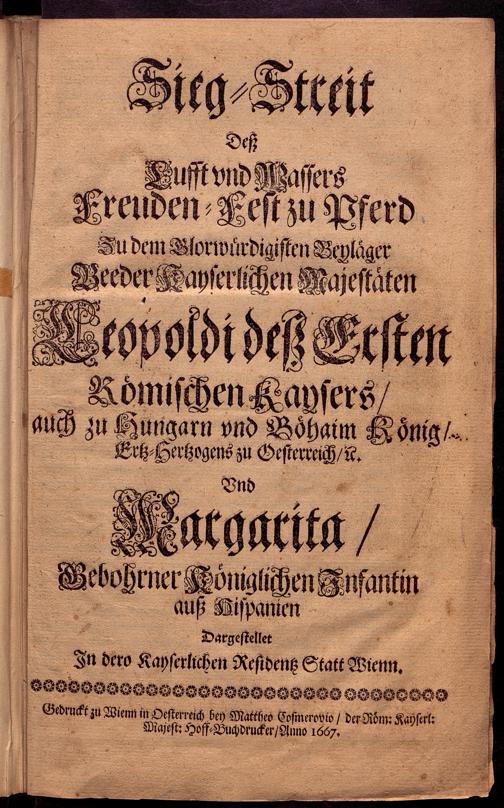 Sieg-Streit
Deß
Lufft vnd Wassers
Freuden-Fest zu Pferd
Zu dem Glorwürdigisten Beyläger
Beeder Kayserlichen Majestäten
Leopoldi deß Ersten
Römischen Kaysers/
auch zu Hungarn vnd Böhaim König/
Ertz-Hertzogens zu Oesterreich/ ꝛc.
Vnd
Margarita/
Gebohrner Königlichen Infantin
auß Hispanien
Dargestellet
In dero Kayserlichen Residentz Statt Wienn.
Gedruckt zu Wienn in Oesterreich bey Mattheo Cosmerovio/ der Röm: Kayserl:
Majest: Hoff-Buchdrucker/ Anno 1667.